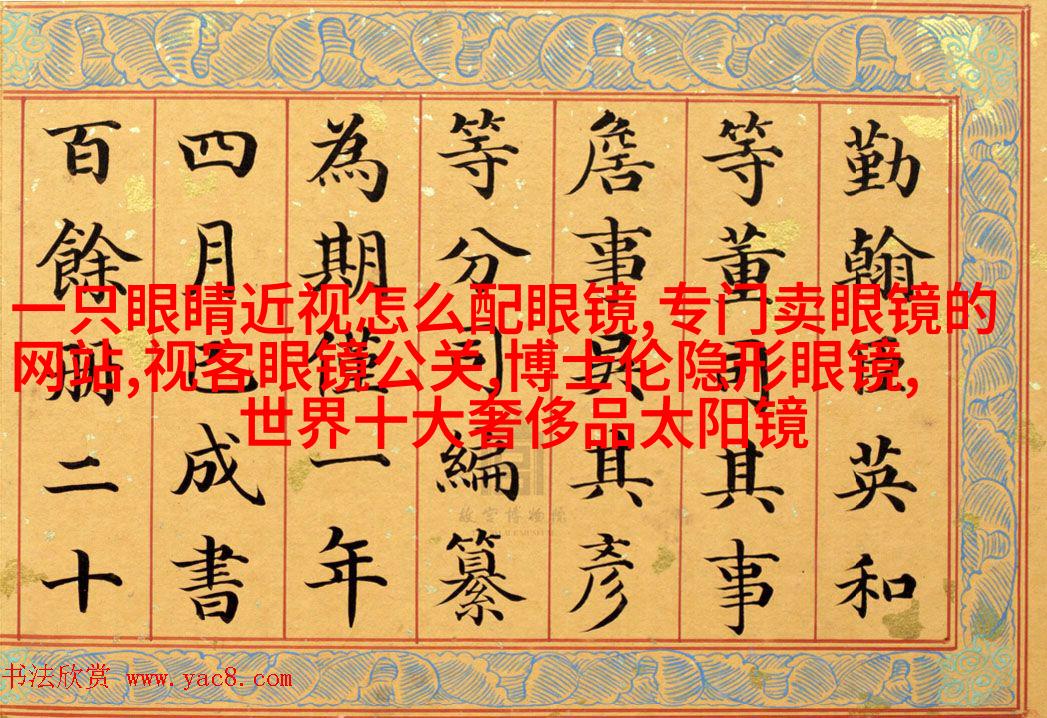 勤翰臣英和
等董司其事
詹事吳其彥
等分司編纂
為期僅一年
四月已成書
百餘冊二十
一只眼睛近视怎么配眼镜,专门卖眼镜的
网站,视客眼镜公关,博士伦隐形眼镜,
世界十大奢侈品太阳镜
故宫博物院
书法欣赏 www.yac8.com